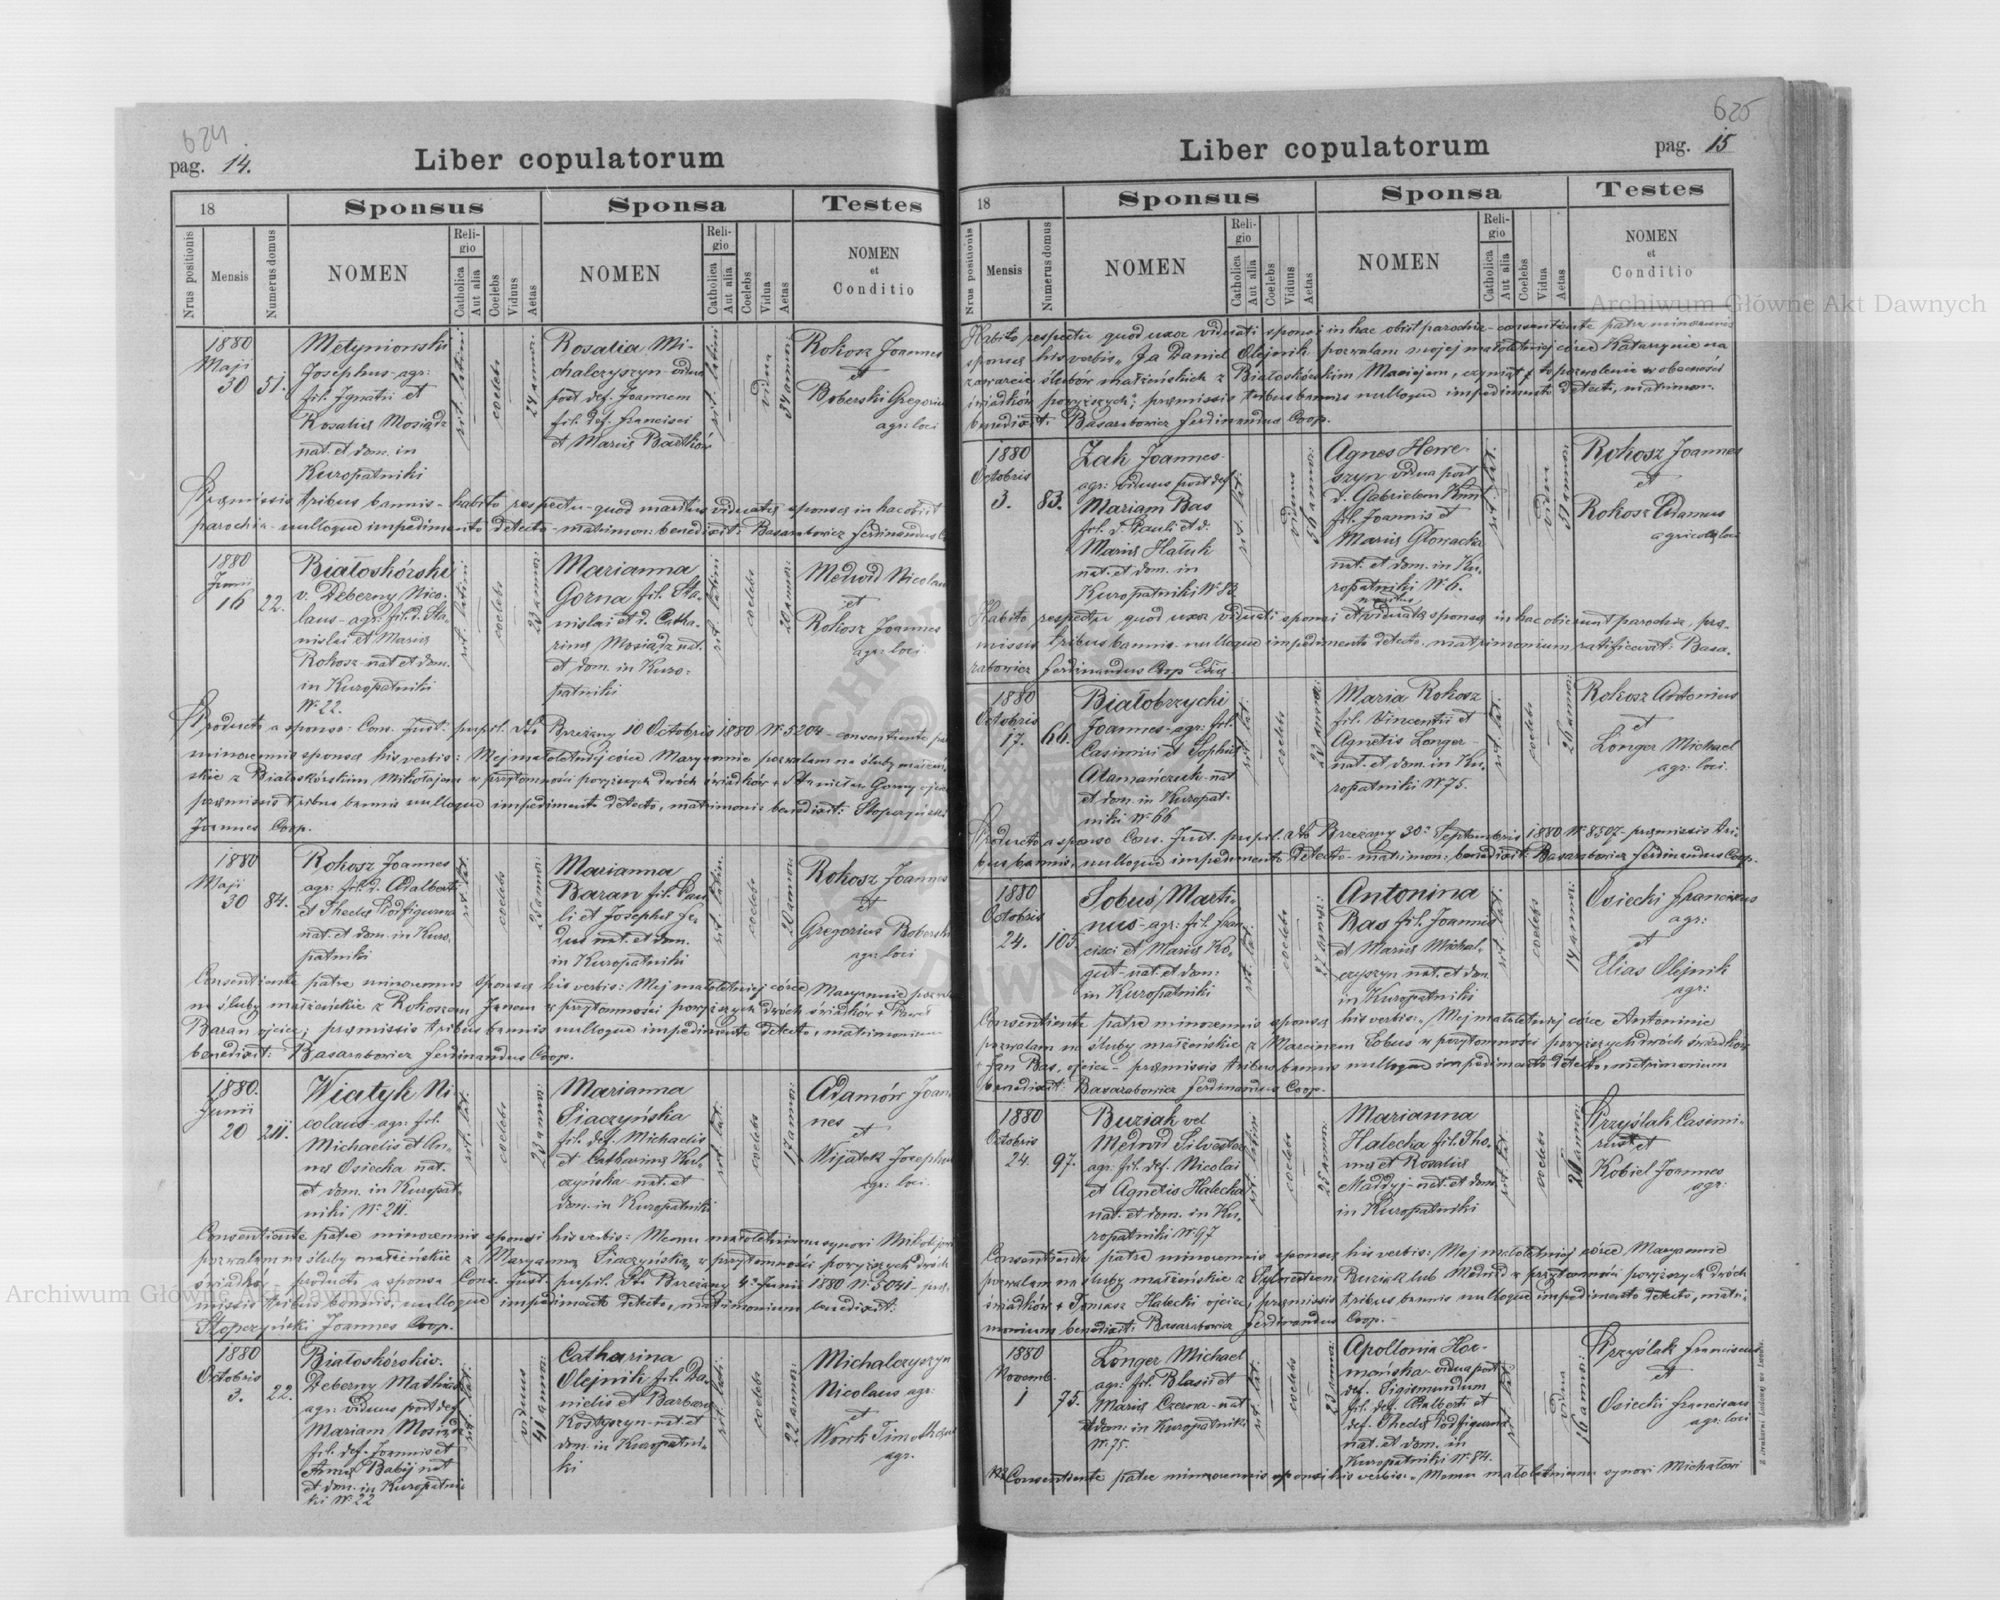 624
pag. 14.
Liber copulatorum
18
Sponsus
Sponsa
Testes
Nrus positionis
Mensis
Numerus domus
NOMEN
Religio
Catholica
Aut alia
Coelebs
Viduus
Aetas
NOMEN
Religio
Catholica
Aut alia
Coelebs
Vidua
Aetas
NOMEN
et
Conditio
1880
Maji
30
51.
Metynionski
Josephus agr:
fil. Ignatii et
Rosaliæ Mosiądz
nat. et dom. in
Kuropatniki
rit. latini
coelebs
24 annor:
Rosalia Mi-
chalczyszyn vidua
post def. Joannem
fil. def. Francisci
et Mariæ Bartków
rit. latini
vidua
34 annor:
Rokosz Joannes
et
Boberski Gregorius
agr: loci
Præmissis tribus bannis - habito respectu quod maritus viduatæ sponsæ in hac obiit
parochia - nulloque impedimento detecto - matrimon: benedixit: Basarabowicz Ferdinandus
1880
Junii
16
22.
Białoskórski
v. Deberny Nico-
laus - agr: fil. d. Sta-
nislai et Mariæ
Rokosz nat et dom.
in Kuropatniki
Nr 22.
rit. latini
coelebs
23 annor:
Marianna
Gorna fil. Sta-
nislai et d. Catha-
rinæ Mosiądz nat.
et dom. in Kuro-
patniki
rit. latini
coelebs
20 annor:
Medwid Nicolaus
et
Rokosz Joannes
agr: loci
Producto a sponso: Cons. Jud: pupil. dto Brzeżany 10 Octobris 1880 Nr 5204 - consentiente
minorennis sponsæ his verbis: Mej małoletniej córce Maryannie pozwalam na śluby małżeń-
skie z Białoskórskim Mikołajem w przytomności powyższych dwóch świadków + Stanisław Gorny ojciec
præmissis tribus bannis nulloque impedimento detecto, matrimoni: benedixit: Słopczyński
Joannes Coop.
1880
Maji
30
84.
Rokosz Joannes
agr: fil. d. Adalberti
et Theclæ Podfigurna
nat. et dom. in Kuro-
patniki
rit. lat.
coelebs
25 annor:
Marianna
Baran fil. Pau-
li et Josephæ Fe-
duś nat. et dom.
in Kuropatniki
rit. latin.
coelebs
20 annor:
Rokosz Joannes
et
Gregorius Boberski
agr: loci
Consentiente patre minorennis sponsæ his verbis: Mej małoletniej córce Maryannie
na śluby małżeńskie z Rokoszem Janem w przytomności powyższych dwóch świadków + Paweł
Baran ojciec; præmissis tribus bannis nulloque impedimento detecto, matrimonium
benedixit: Basarabowicz Ferdinandus Coop.
1880.
Junii
20
211.
Wiatyk Ni-
colaus - agr: fil.
Michaelis et An-
næ Osiecka nat.
et dom. in Kuropat-
niki Nr 211.
rit. lat.
coelebs
23 annor:
Marianna
Siaczyńska
fil. def. Michaelis
et Catharinæ Kul-
czyńska nat. et
dom. in Kuropatniki
rit. lat.
coelebs
17 annor:
Adamów Joan-
nes
et
Wijatek Josephus
agr: loci
Consentiente patre minorennis sponsi his verbis: Memu małoletniemu synowi Mikołajowi
pozwalam na śluby małżeńskie z Maryanną Siaczyńską w przytomności powyższych dwóch
świadków producto a sponsa Cons. Jud. pupil. dto Brzeżany 4º Junii 1880 Nr 5041 - præ-
missis tribus bannis, nulloque impedimento detecto, matrimonium benedixit:
Słopczyński Joannes Coop.
1880
Octobris
3.
22.
Białoskórski v.
Deberny Mathias
agr: viduus post def.
Mariam Mosiądz
fil. def. Joannis et
Annæ Babij nat
et dom. in Kuropatni-
ki Nr 22
rit. lat.
viduus
41 annor:
Catharina
Olejnik fil. Da-
nielis et Barbaræ
Kostyszyn nat. et
dom. in Kuropatni-
ki
rit. lati:
coelebs
22 annor:
Michalczyszyn
Nicolaus agr:
et
Worik Timotheus
agr.
625
pag. 15
Liber copulatorum
18
Sponsus
Sponsa
Testes
Nrus positionis
Mensis
Numerus domus
NOMEN
Religio
Catholica
Aut alia
Coelebs
Viduus
Aetas
NOMEN
Religio
Catholica
Aut alia
Coelebs
Vidua
Aetas
NOMEN
et
Conditio
Habito respectu quod uxor viduati sponsi in hac obiit parochia - consentiente patre minorennis
sponsæ his verbis „Ja Daniel Olejnik pozwalam mojej małoletniej córce Katarzynie na
zawarcie ślubów małżeńskich z Białoskórskim Maciejem, czyniąc to pozwolenie w obecności
świadków powyższych"; præmissis tribus bannis nulloque impedimento detecto, matrimon:
benedixit: Basarabowicz Ferdinandus Coop.
1880
Octobris
3.
83.
Żak Joannes
agr: viduus post def
Mariam Bas
fil. d. Pauli et d.
Mariæ Hałuk
nat. et dom. in
Kuropatniki Nr 83
rit. lat:
viduus
56 annor:
Agnes Hewe-
szyn vidua post
d. Gabrielem Kmit
fil. Joannis et
Mariæ Głowacka
nat. et dom. in Ku-
ropatniki Nr 6.
rit. lat.
vidua
51 annor:
Rokosz Joannes
et
Rokosz Adamus
agricolæ loci
maritus
Habito respectu quod uxor viduati sponsi et viduatæ sponsæ in hac obierunt parochia, præ-
missis tribus bannis nulloque impedimento detecto, matrimonium ratificavit: Basa-
rabowicz Ferdinandus Coop
1880
Octobris
17.
66.
Białobrzycki
Joannes - agr: fil.
Casimiri et Sophiæ
Atamańczuk nat
et dom. in Kuropat-
niki Nr 66
rit. lat.
coelebs
23 annor:
Maria Rokosz
fil. Vincentii et
Agnetis Longer
nat. et dom. in Ku-
ropatniki Nr 75.
rit. lat.
coelebs
26 annor:
Rokosz Antonius
et
Longer Michael
agr: loci.
Producto a sponso Cons. Jud. pupil. dto Brzeżany 30º Septembris 1880 Nr 8507 - præmissis tri-
bus bannis, nulloque impedimento detecto - matrimon: benedixit: Basarabowicz Ferdinandus Coop.
1880
Octobris
24.
105
Sobuś Marti-
nus - agr: fil. Fran-
cisci et Mariæ Ko-
gut - nat. et dom:
in Kuropatniki
rit. lat.
coelebs
27 annor:
Antonina
Bas fil. Joannis
et Mariæ Michal-
czyszyn nat. et dom
in Kuropatniki
rit. lat.
coelebs
14 annor:
Osiecki Franciscus
agr:
et
Elias Olejnik
agr:
Consentiente patre minorennis sponsæ his verbis: „Mej małoletniej córce Antoninie
pozwalam na śluby małżeńskie z Marcinem Sobuś w przytomności powyższych dwóch świadków
+ Jan Bas, ojciec - præmissis tribus bannis nulloque impedimento detecto, matrimonium
benedixit: Basarabowicz Ferdinandus Coop.
1880
Octobris
24.
97.
Buziak vel
Medwid Silvester
agr: fil. def. Nicolai
et Agnetis Halecka
nat. et dom. in Ku-
ropatniki Nr 97
rit. latin
coelebs
25 annor:
Marianna
Halecka fil. Tho-
mæ et Rosaliæ
Maddyj - nat. et dom.
in Kuropatniki
rit. lat.
coelebs
Przyślak Casimi-
rus et
Kobiel Joannes
agr:
Consentiente patre minorennis sponsæ his verbis: Mej małoletniej córce Maryannie
pozwalam na śluby małżeńskie z Sylwestrem Buziak lub Medwid w przytomności powyższych dwóch
świadków + Tomasz Halecki ojciec, præmissis tribus bannis nulloque impedimento detecto, matri-
monium benedixit: Basarabowicz Ferdinandus Coop.
1880
Novemb.
1
75.
Longer Michael
agr: fil. Blasii et
Mariæ Czerna - nat
et dom. in Kuropatniki
Nr 75.
rit. lat.
coelebs
23 annor:
Apollonia Hor-
mańska vidua post
def. Sigismundum
fil. def. Adalberti et
def. Theclæ Podfigurna
nat. et dom. in
Kuropatniki Nr 84.
rit lat.
vidua
Przyślak Franciscus
et
Osiecki Franciscus
agr: loci
Consentiente patre minorennis sponsi his verbis: „Memu małoletniemu synowi Michałowi
Z drukarni Ludowej we Lwowie.
Archiwum Główne Akt Dawnych
Archiwum Główne Akt Dawnych